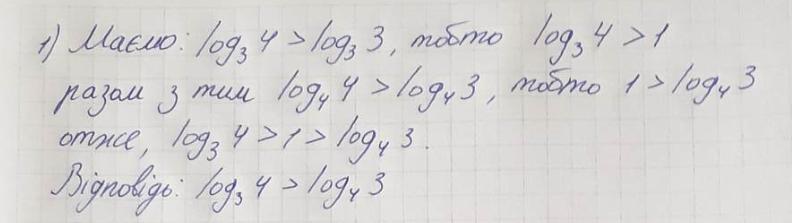 1) Маємо: log₃4 > log₃3, тобто log₃4 > 1
разом з тим log₄4 > log₄3, тобто 1 > log₄3
отже, log₃4 > 1 > log₄3.
Відповідь: log₃4 > log₄3